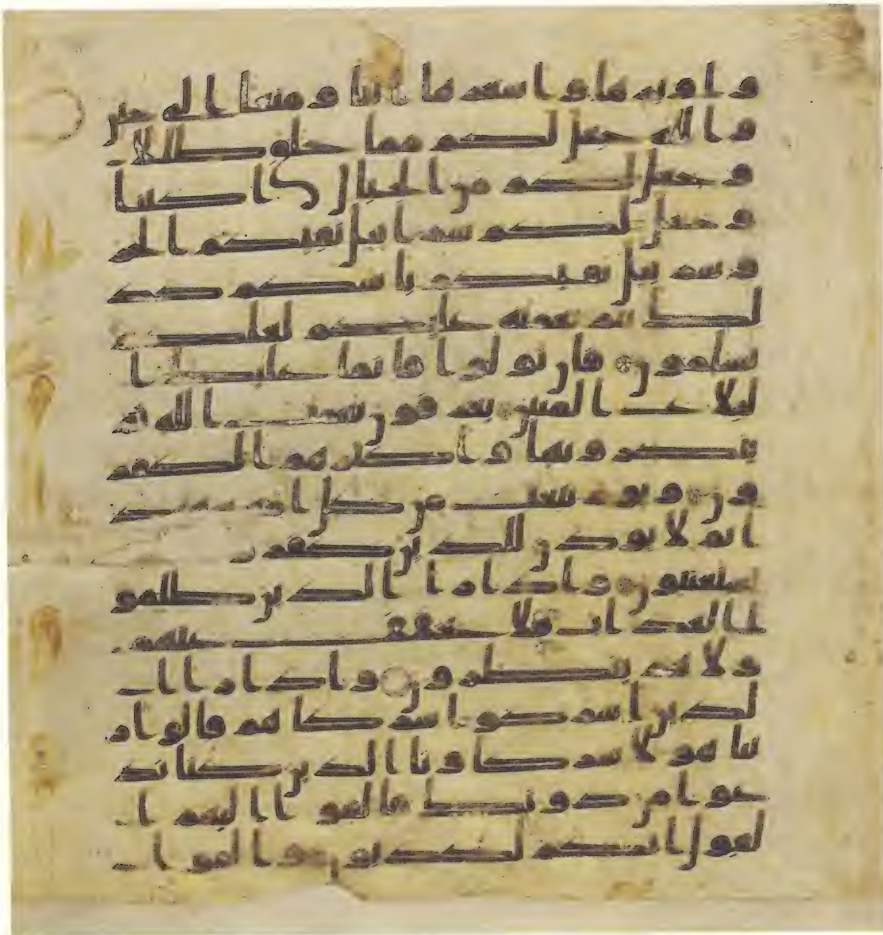 و اوبرها و اشعرها اثثا و متعا الى حين
و الله جعل لكم مما خلق ظللا
و جعل لكم من الجبال اكننا
و جعل لكم سربيل تقيكم الحر
و سربيل تقيكم باسكم كذ
لك يتم نعمته عليكم لعلكم
تسلمون فان تولوا فانما عليك ا
لبلغ المبين يعرفون نعمت الله ثم
ينكرونها و اكثرهم الكفر
ون و يوم نبعث من كل امة شهيدا
ثم لا يوذن للذين كفروا
يستعتبون و اذا را الذين ظلمو
ا العذاب فلا يخفف عنهم
و لا هم ينظرون و اذا را ا
لذين اشركوا شركاهم قالوا ر
بنا هولا شركاونا الذين كنا ند
عوا من دونك فالقوا اليهم ا
لقول انكم لكذبون و القوا ا